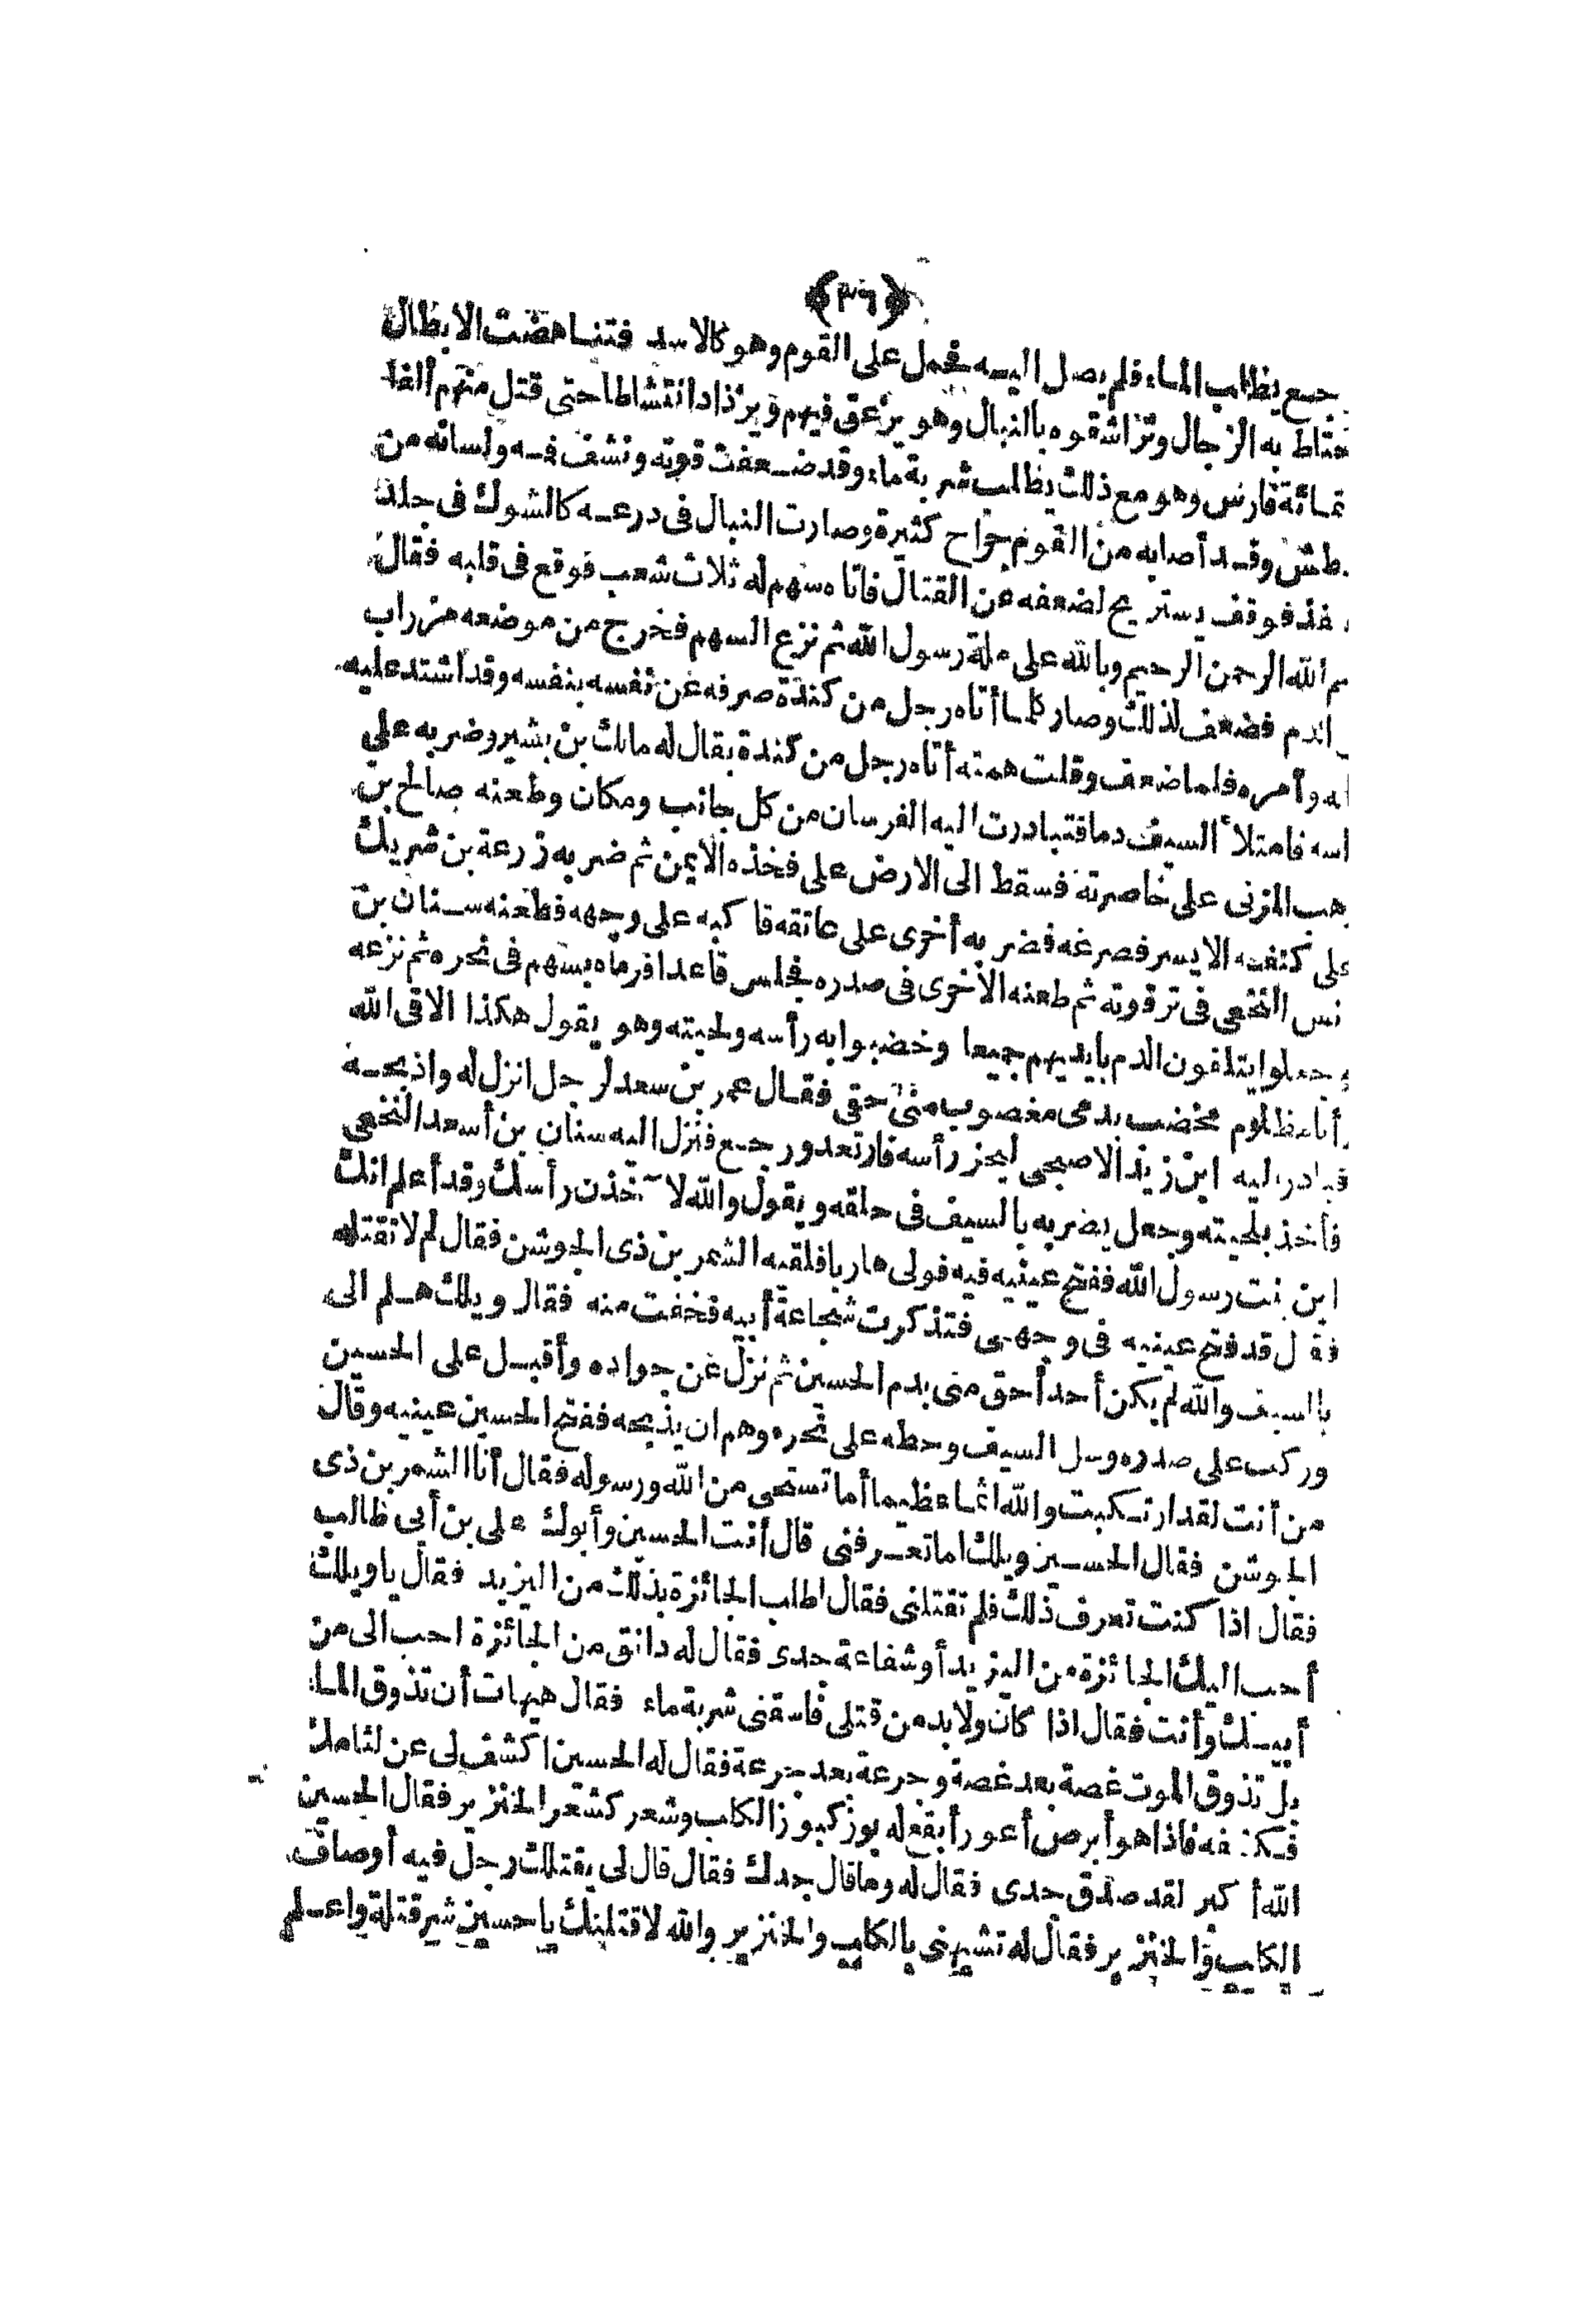 ﴿٣٦﴾
جع يطلب الماء فلم يصل اليه فحمل على القوم وهو كالاسد فتناهضت الابطال
حتاط به الرجال وتراشقوه بالنبال وهو يزعق فيهم ويزداد انتشاطا حتى قتل منهم ألفا
ثمائة فارس وهو مع ذلك يطلب شربة ماء وقد ضعفت قوته ونشف فه ولسانه من
طش وقد أصابه من القوم جراح كثيرة وصارت النبال فى درعه كالشوك فى جلد
فذ فوقف يستريح لضعفه عن القتال فاتاه سهم له ثلاث شعب فوقع فى قلبه فقال
م الله الرحمن الرحيم وبالله على ملة رسول الله ثم نزع السهم فخرج من موضعه مزراب
الدم فضعف لذلك وصار كلما أتاه رجل من كندة صرفه عن نفسه بنفسه وقد اشتد عليه
له وأمره فلما ضعف وقلت همته أتاه رجل من كندة يقال له مالك بن بشير وضربه على
اسه فامتلأ السيف دما فتبادرت اليه الفرسان من كل جانب ومكان وطعنه صالح بن
هب المزنى على خاصرته فسقط الى الارض على فخذه الايمن ثم ضربه زرعة بن شريك
على كتفه الايسر فصرعه فضربه أخرى على عاتقه فا كبه على وجهه فطعنه سنان بن
نس النخعى فى ترقوته ثم طعنه الأخرى فى صدره فجلس قاعدا فرماه بسهم فى نحره ثم نزعه
وجعلوا يتلقون الدم بايديهم جميعا وخضبوا به رأسه ولحيته وهو يقول هكذا الاقى الله
أنا مظلوم مخضب بدمى مغصوب منى حقى فقال عمر بن سعد لرجل انزل له واذبحه
فبادر اليه ابن زيد الاصبحى ليحز رأسه فارتعد ورجع فنزل اليه سنان بن أسعد النخعى
فأخذ بلحيته وجعل يضربه بالسيف فى حلقه ويقول والله لآخذن رأسك وقد أعلم انك
ابن بنت رسول الله ففتح عينيه فيه فولى هاربا فلقيه الشمر بن ذى الجوشن فقال لم لا تقتله
فقال قد فتح عينيه فى وجهى فتذكرت شجاعة أبيه فخفت منه فقال ويلك هلم الى
بالسيف والله لم يكن أحد أحق منى بدم الحسين ثم نزل عن جواده وأقبل على الحسين
وركب على صدره وسل السيف وحطه على نحره وهم ان يذبحه ففتح الحسين عينيه وقال
من أنت لقد ارتكبت والله اثما عظيما أما تستحى من الله ورسوله فقال أنا الشمر بن ذى
الجوشن فقال الحسين ويلك اما تعرفنى قال أنت الحسين وأبوك على بن أبى طالب
فقال اذا كنت تعرف ذلك فلم تقتلنى فقال اطلب الجائزة بذلك من اليزيد فقال ياويلك
أحب اليك الجائزة من اليزيد أو شفاعة جدى فقال له دانق من الجائزة احب الى من
أبيك وأنت فقال اذا كان ولا بد من قتلى فاسقنى شربة ماء فقال هيهات أن تذوق الماء
بل تذوق الموت غصة بعد غصة وجرعة بعد جرعة فقال له الحسين اكشف لى عن لثامك
فكشفه فاذا هو أبرص أعور أبقع له بوز كبوز الكلب وشعر كشعر الخنزير فقال الحسين
الله أكبر لقد صدق جدى فقال له وما قال جدك فقال قال لى يقتلك رجل فيه أوصاف
الكلب والخنزير فقال له تشبهنى بالكلب والخنزير والله لاقتلنك ياحسين شر قتلة واعلم